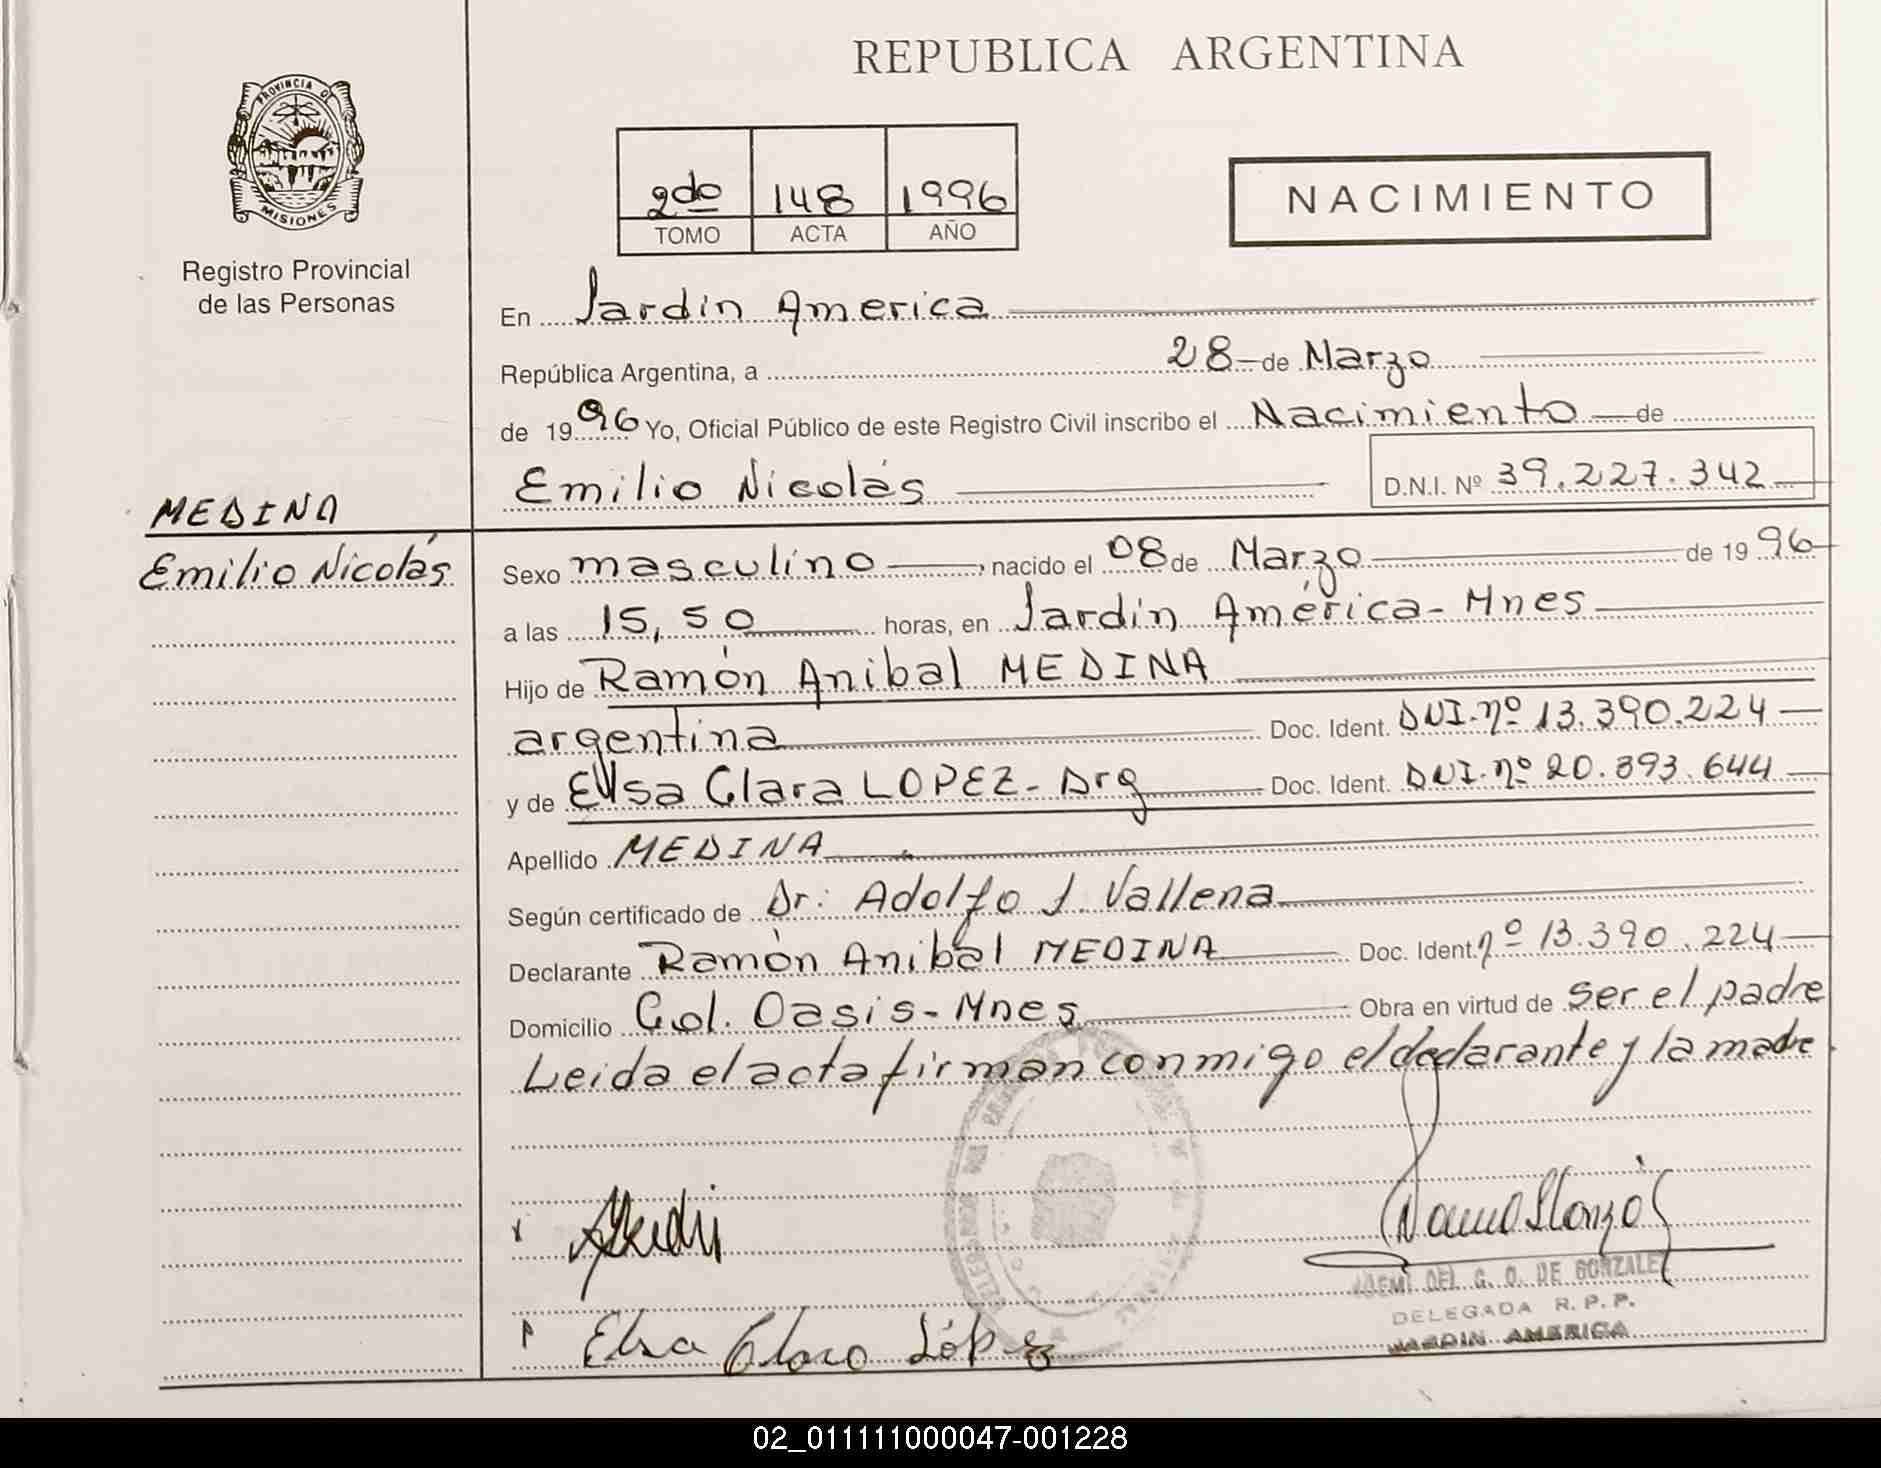 REPUBLICA ARGENTINA
PROVINCIA DE
MISIONES
Registro Provincial
de las Personas
2do 148 1996
TOMO ACTA AÑO
NACIMIENTO
En Jardin America
República Argentina, a 28 de Marzo
de 1996 Yo, Oficial Público de este Registro Civil inscribo el Nacimiento de
Emilio Nicolás D.N.I. Nº 39.227.342
MEDINA
Emilio Nicolás
Sexo masculino, nacido el 08 de Marzo de 1996
a las 15,50 horas, en Jardín América - Mnes
Hijo de Ramón Anibal MEDINA
argentina Doc. Ident. DNI. nº 13.390.224
y de Elsa Clara LOPEZ - Arg Doc. Ident. DNI. nº 20.393.644
Apellido MEDINA
Según certificado de Dr: Adolfo J. Vallena
Declarante Ramón Anibal MEDINA Doc. Ident. nº 13.390.224
Domicilio Col. Oasis - Mnes Obra en virtud de ser el padre
Leida el acta firman conmigo el declarante y la madre.
Elsa Clara López
DEL G. O. DE GONZALEZ
DELEGADA R.P.P.
JARDIN AMERICA
02_011111000047-001228